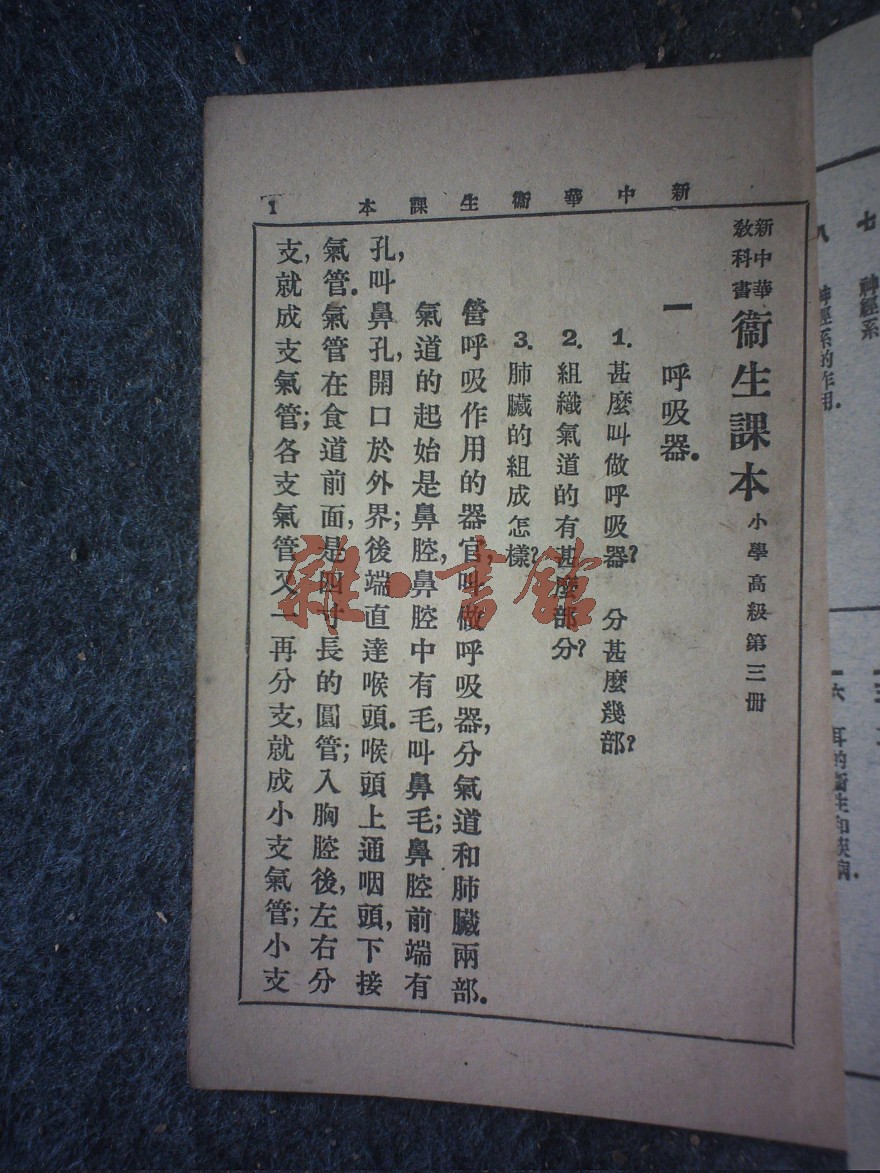 新中華衞生課本 1
新中華
教科書
衞生課本 小學高級第三册
一 呼吸器.
1. 甚麼叫做呼吸器? 分甚麼幾部?
2. 組織氣道的有甚麼部分?
3. 肺臟的組成怎樣?
營呼吸作用的器官,叫做呼吸器,分氣道和肺臟兩部.
氣道的起始是鼻腔,鼻腔中有毛,叫鼻毛;鼻腔前端有
孔,叫鼻孔,開口於外界;後端直達喉頭.喉頭上通咽頭,下接
氣管.氣管在食道前面,是四寸長的圓管;入胸腔後,左右分
支,就成支氣管;各支氣管又一再分支,就成小支氣管;小支
雜·書館
七 神經系
八 神經系的作用.
一六 耳的衞生和疾病.